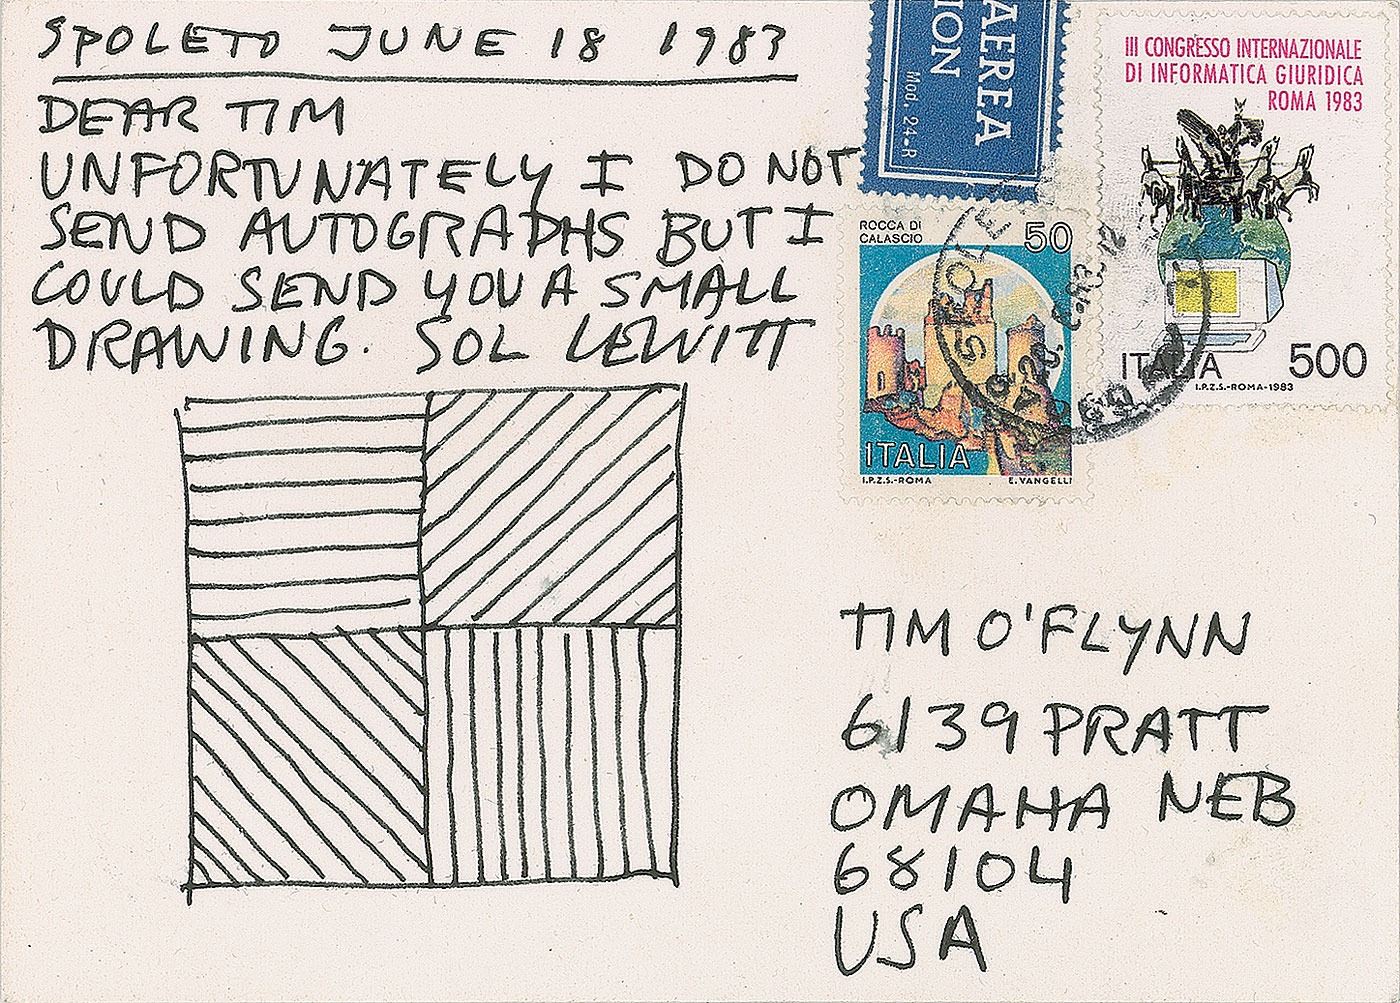 SPOLETO JUNE 18 1983
DEAR TIM
UNFORTUNATELY I DO NOT
SEND AUTOGRAPHS BUT I
COULD SEND YOU A SMALL
DRAWING. SOL LEWITT
AEREA
ION
Mod. 24-R
III CONGRESSO INTERNAZIONALE
DI INFORMATICA GIURIDICA
ROMA 1983
ITALIA 500
I.P.Z.S.-ROMA-1983
ROCCA DI
CALASCIO
50
ITALIA
I.P.Z.S.-ROMA E. VANGELLI
TIM O'FLYNN
6139 PRATT
OMAHA NEB
68104
USA